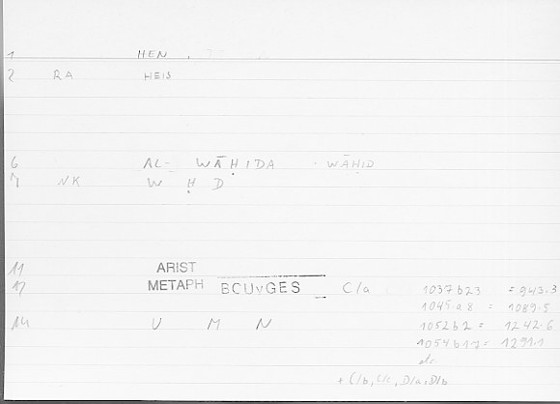 1 HEN
2 RA HEIS
6 AL- WĀḤIDA WĀḤID
7 NK W Ḥ D
11 ARIST
12 METAPH BCUvGES C/a 1037b23 = 943.3
1045a8 = 1089.5
14 U M N 1052b2 = 1242.6
1054b17 = 1291.1
etc.
+ C/b, C/c, D/a, D/b